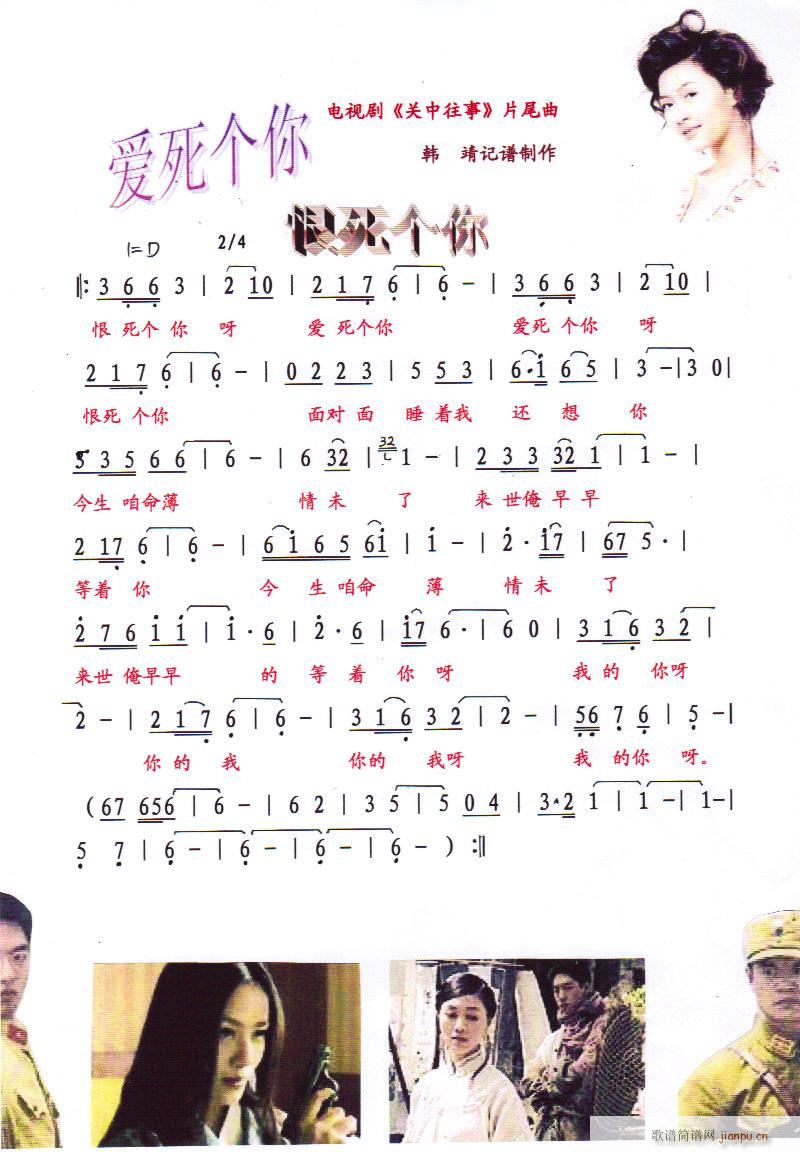 爱死个你
电视剧《关中往事》片尾曲
韩 靖记谱制作
恨死个你
1=D 2/4
‖: 3 6 6 3 | 2 10 | 2 1 7 6 | 6 - | 3 6 6 3 | 2 10 |
恨 死个 你 呀 爱 死个你 爱死 个你 呀
2 1 7 6 | 6 - | 0 2 2 3 | 5 5 3 | 6·i 6 5 | 3 -|3 0|
恨死 个你 面对 面 睡 着我 还 想 你
5 3 5 6 6 | 6 - | 6 32 | 32 1 - | 2 3 3 32 1 | 1 - |
今生 咱命薄 情 未 了 来 世俺 早 早
2 17 6 | 6 - | 6 i 6 5 6i | i - | 2· i7 | 67 5· |
等着 你 今 生 咱命 薄 情 未 了
2 7 6 i i | i· 6 | 2· 6 | i7 6· | 6 0 | 3 1 6 3 2 |
来世 俺早早 的 等 着 你 呀 我 的 你呀
2 - | 2 1 7 6 | 6 - | 3 1 6 3 2 | 2 - | 56 7 6 | 5 -|
你 的 我 你的 我呀 我 的你 呀。
（67 656 | 6 - | 6 2 | 3 5 | 5 04 | 3·2 1 | 1 -| 1-|
5 7 | 6 - | 6 - | 6 - | 6 - ）:‖
歌谱简谱网 jianpu.cn